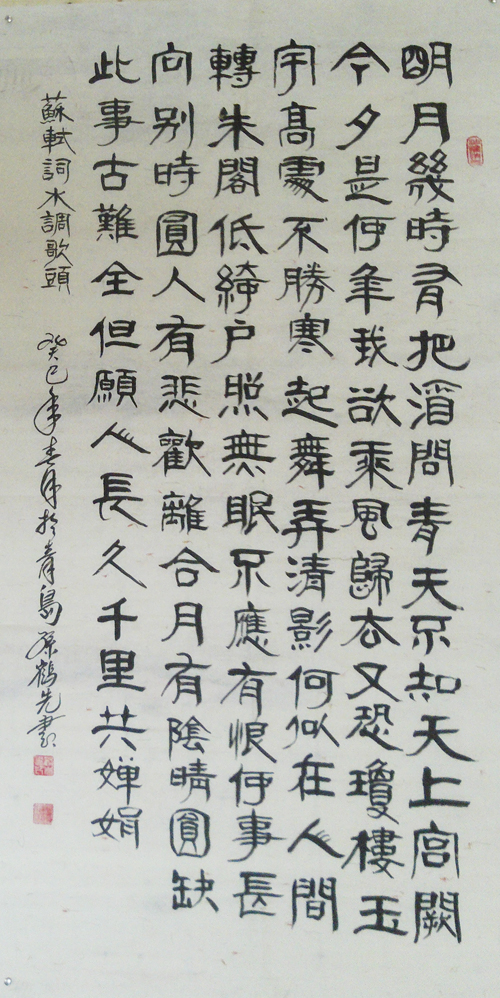 明月幾時有把酒問青天不知天上宮闕
今夕是何年我欲乘風歸去又恐瓊樓玉
宇高處不勝寒起舞弄清影何似在人間
轉朱閣低綺户照無眠不應有恨何事長
向别時圓人有悲歡離合月有陰晴圓缺
此事古難全但願人長久千里共嬋娟
蘇軾詞水調歌頭 癸巳年春月於青島孫鶴先書